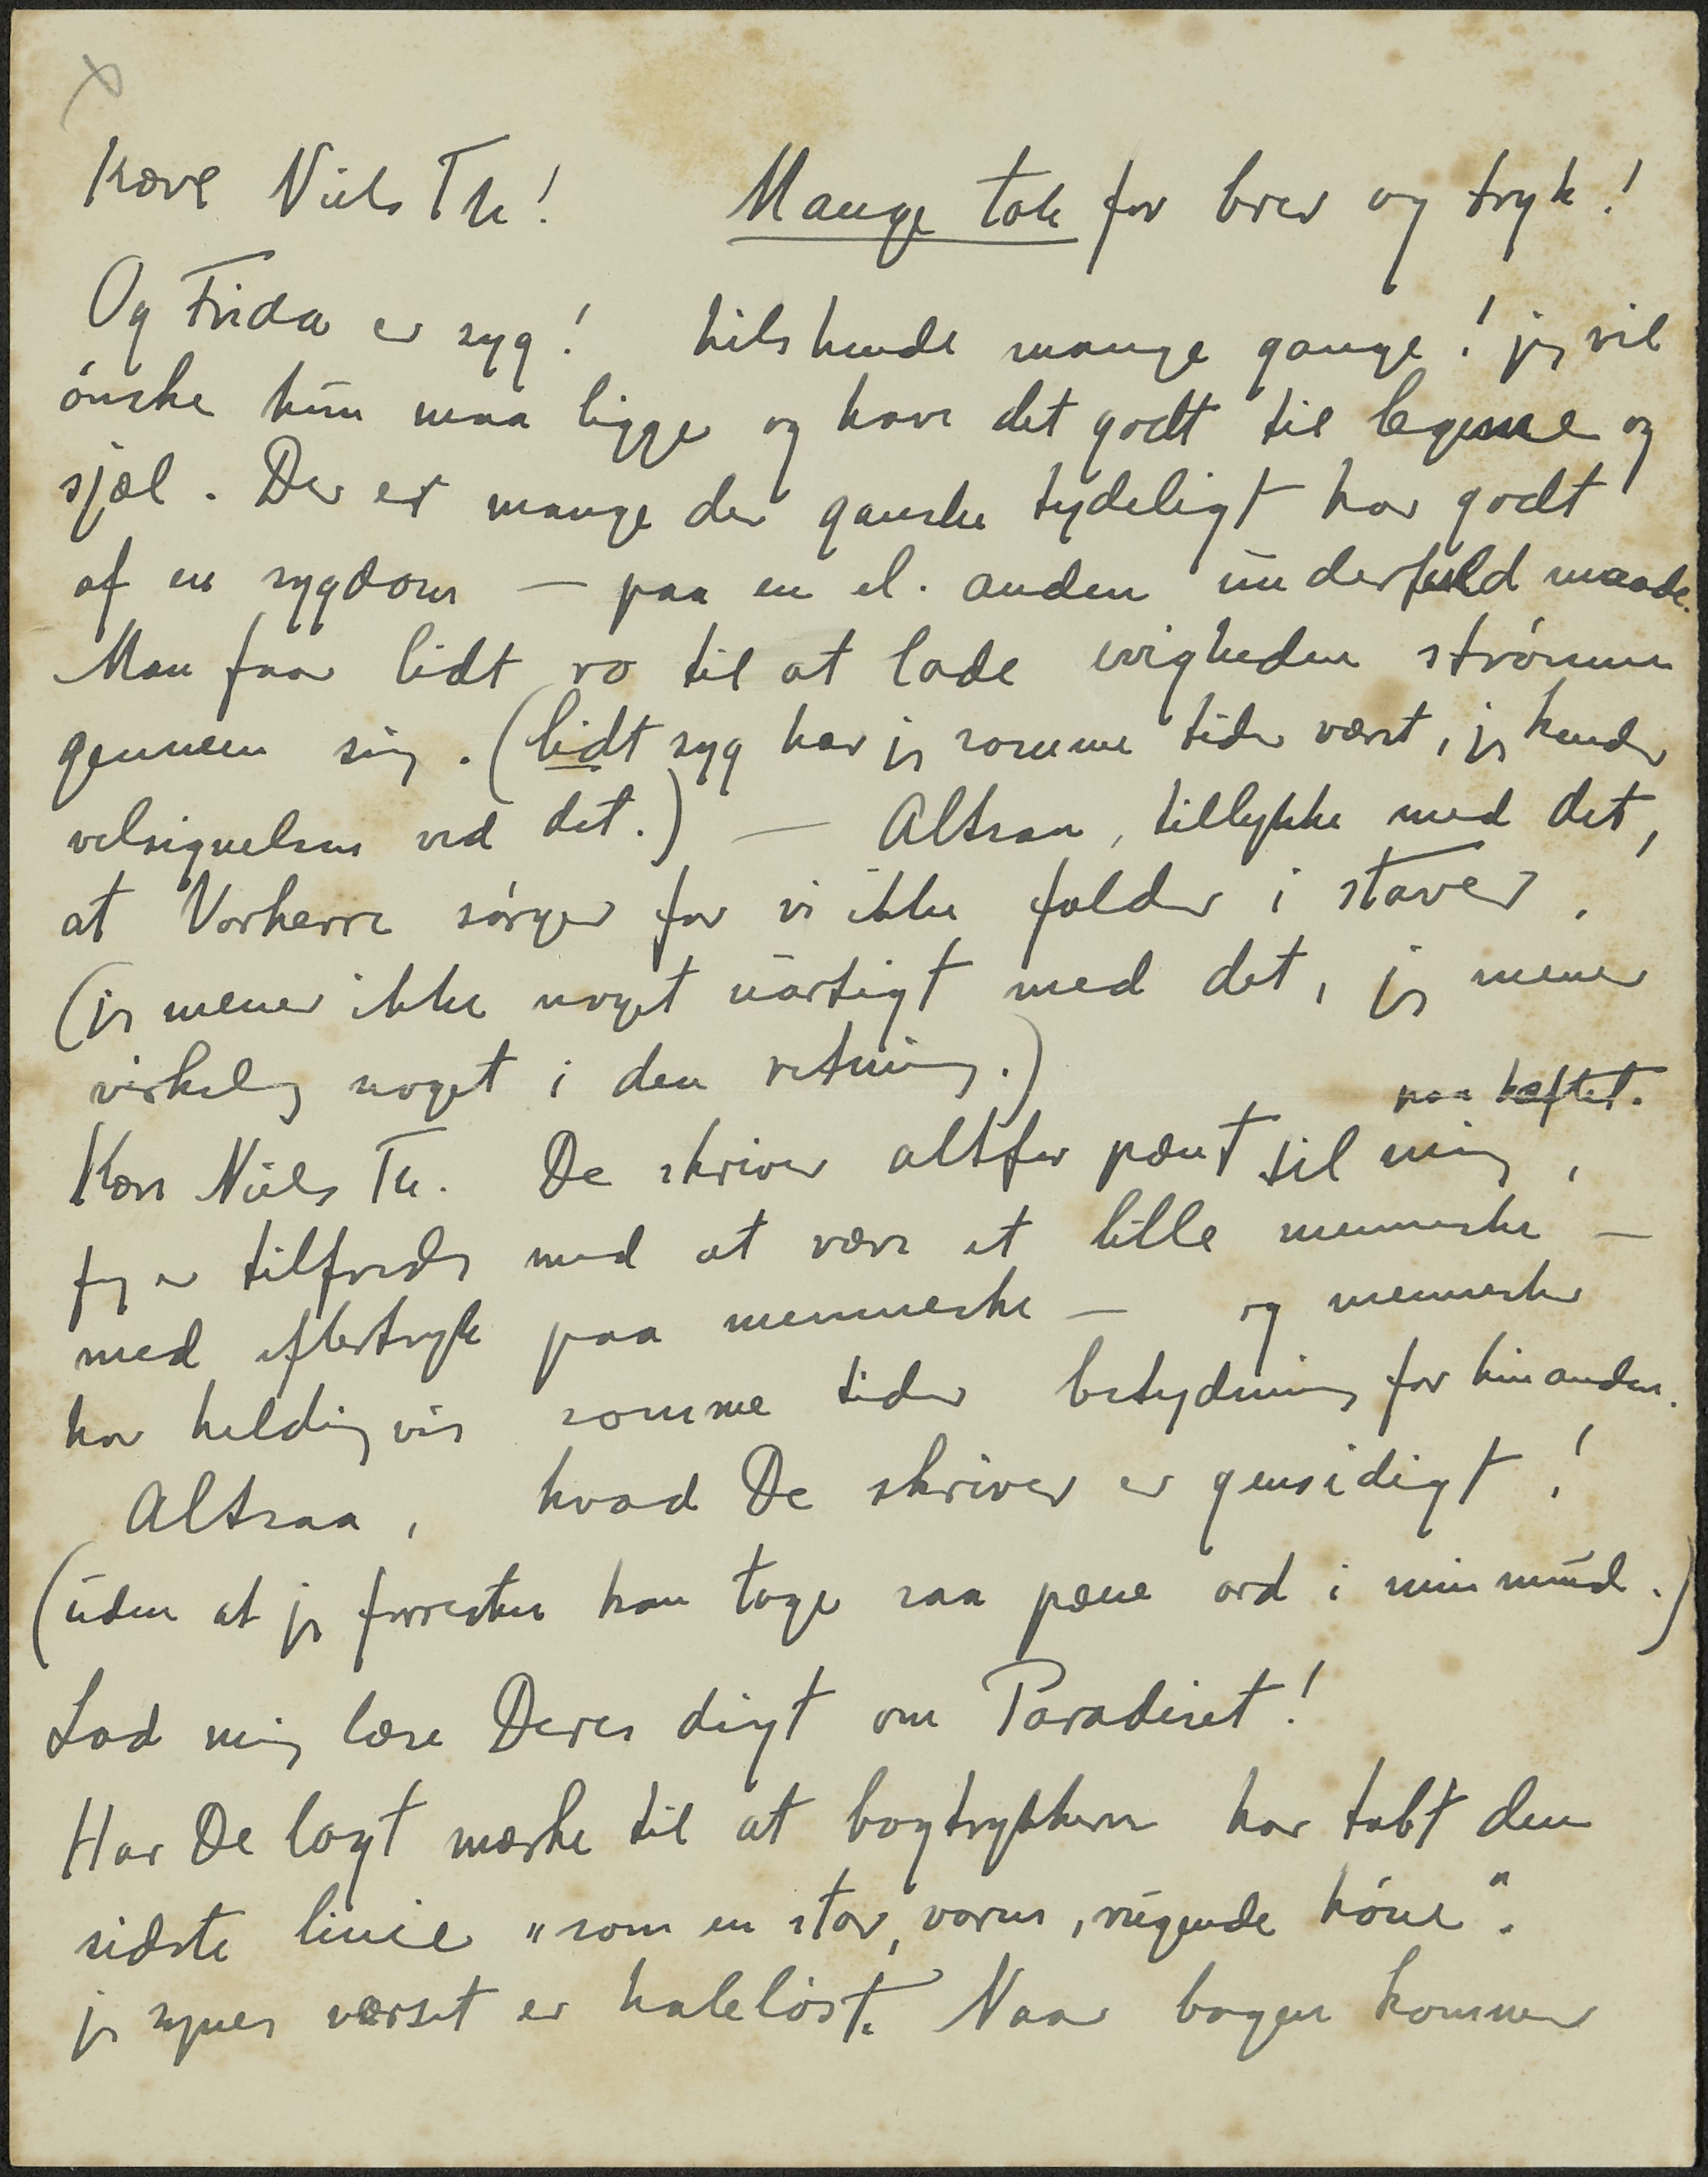 Kære Niels Th! Mange tak for brev og tryk!
Og Frida er syg! hils hende mange gange! jeg vil
ónske hun maa ligge og have det godt til legeme og
sjæl. Der er mange der ganske tydeligt har godt
af en sygdom — paa en el. anden underfuld maade.
Man faar lidt ro til at lade evigheden strómme
gennem sig. (lidt syg har jeg somme tider været, jeg kender
velsignelsen ved det.) — Altsaa, tillykke med det,
at Vorherre sórger for vi ikke falder i staver.
(jeg mener ikke noget uartigt med det, jeg mener
virkelig noget i den retning.)
paa hæftet.
Kære Niels Th. De skriver altfor pænt til mig,
jeg er tilfreds med at være et lille menneske —
med eftertryk paa menneske — og mennesker
har heldigvis somme tider betydning for hinanden.
Altsaa, hvad De skriver er gensidigt!
(uden at jeg forresten kan tage saa pæne ord i min mund.)
Lad mig læse Deres digt om Paradiset!
Har De lagt mærke til at bogtrykkeren har tabt den
sidste linie "som en stor, varm, rugende hóne".
jeg synes verset er halelóst. Naar bogen kommer